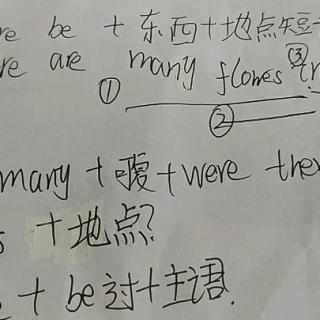 re be + 东西+地点短
re are many flowes ③ tr
① ②
many + 嗄 + were ther
s + 地点?
+ be 讨+主语.